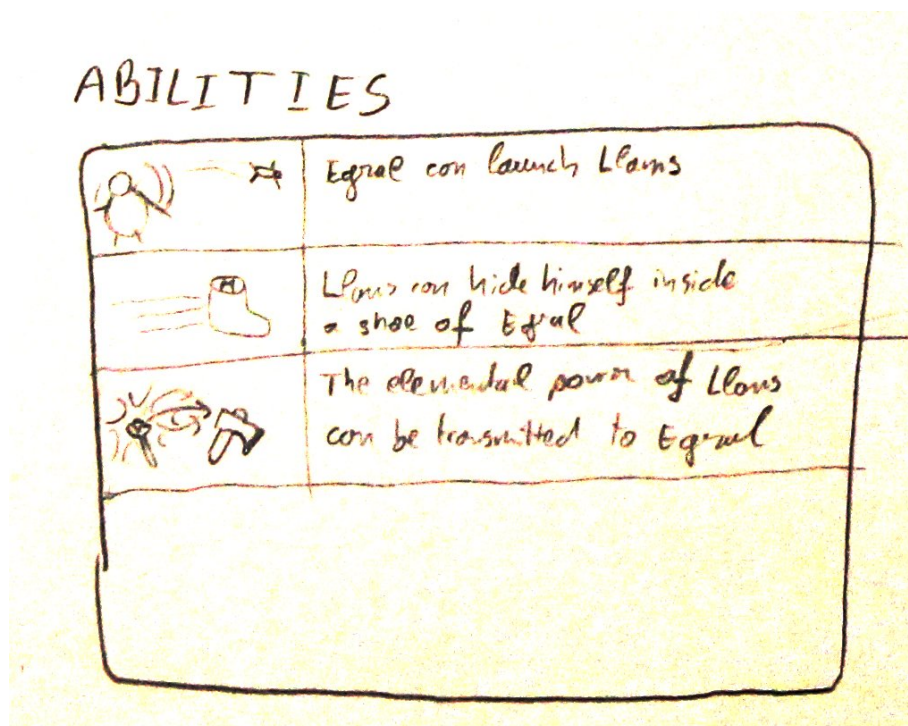 ABILITIES
Egral can launch Llams
Llams can hide himself inside
a shoe of Egral
The elemental power of Llams
can be transmitted to Egral